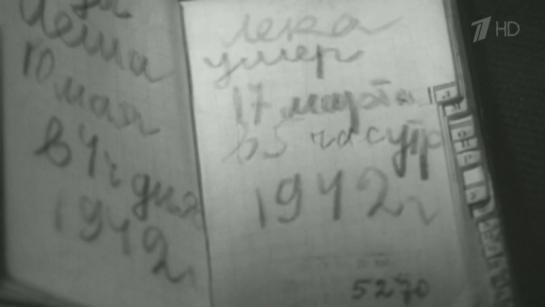 Леша
10 мая
в 4 ч дня
1942 г
Лека
умер
17 марта
в 5 час утр
1942 г
5270
1 HD